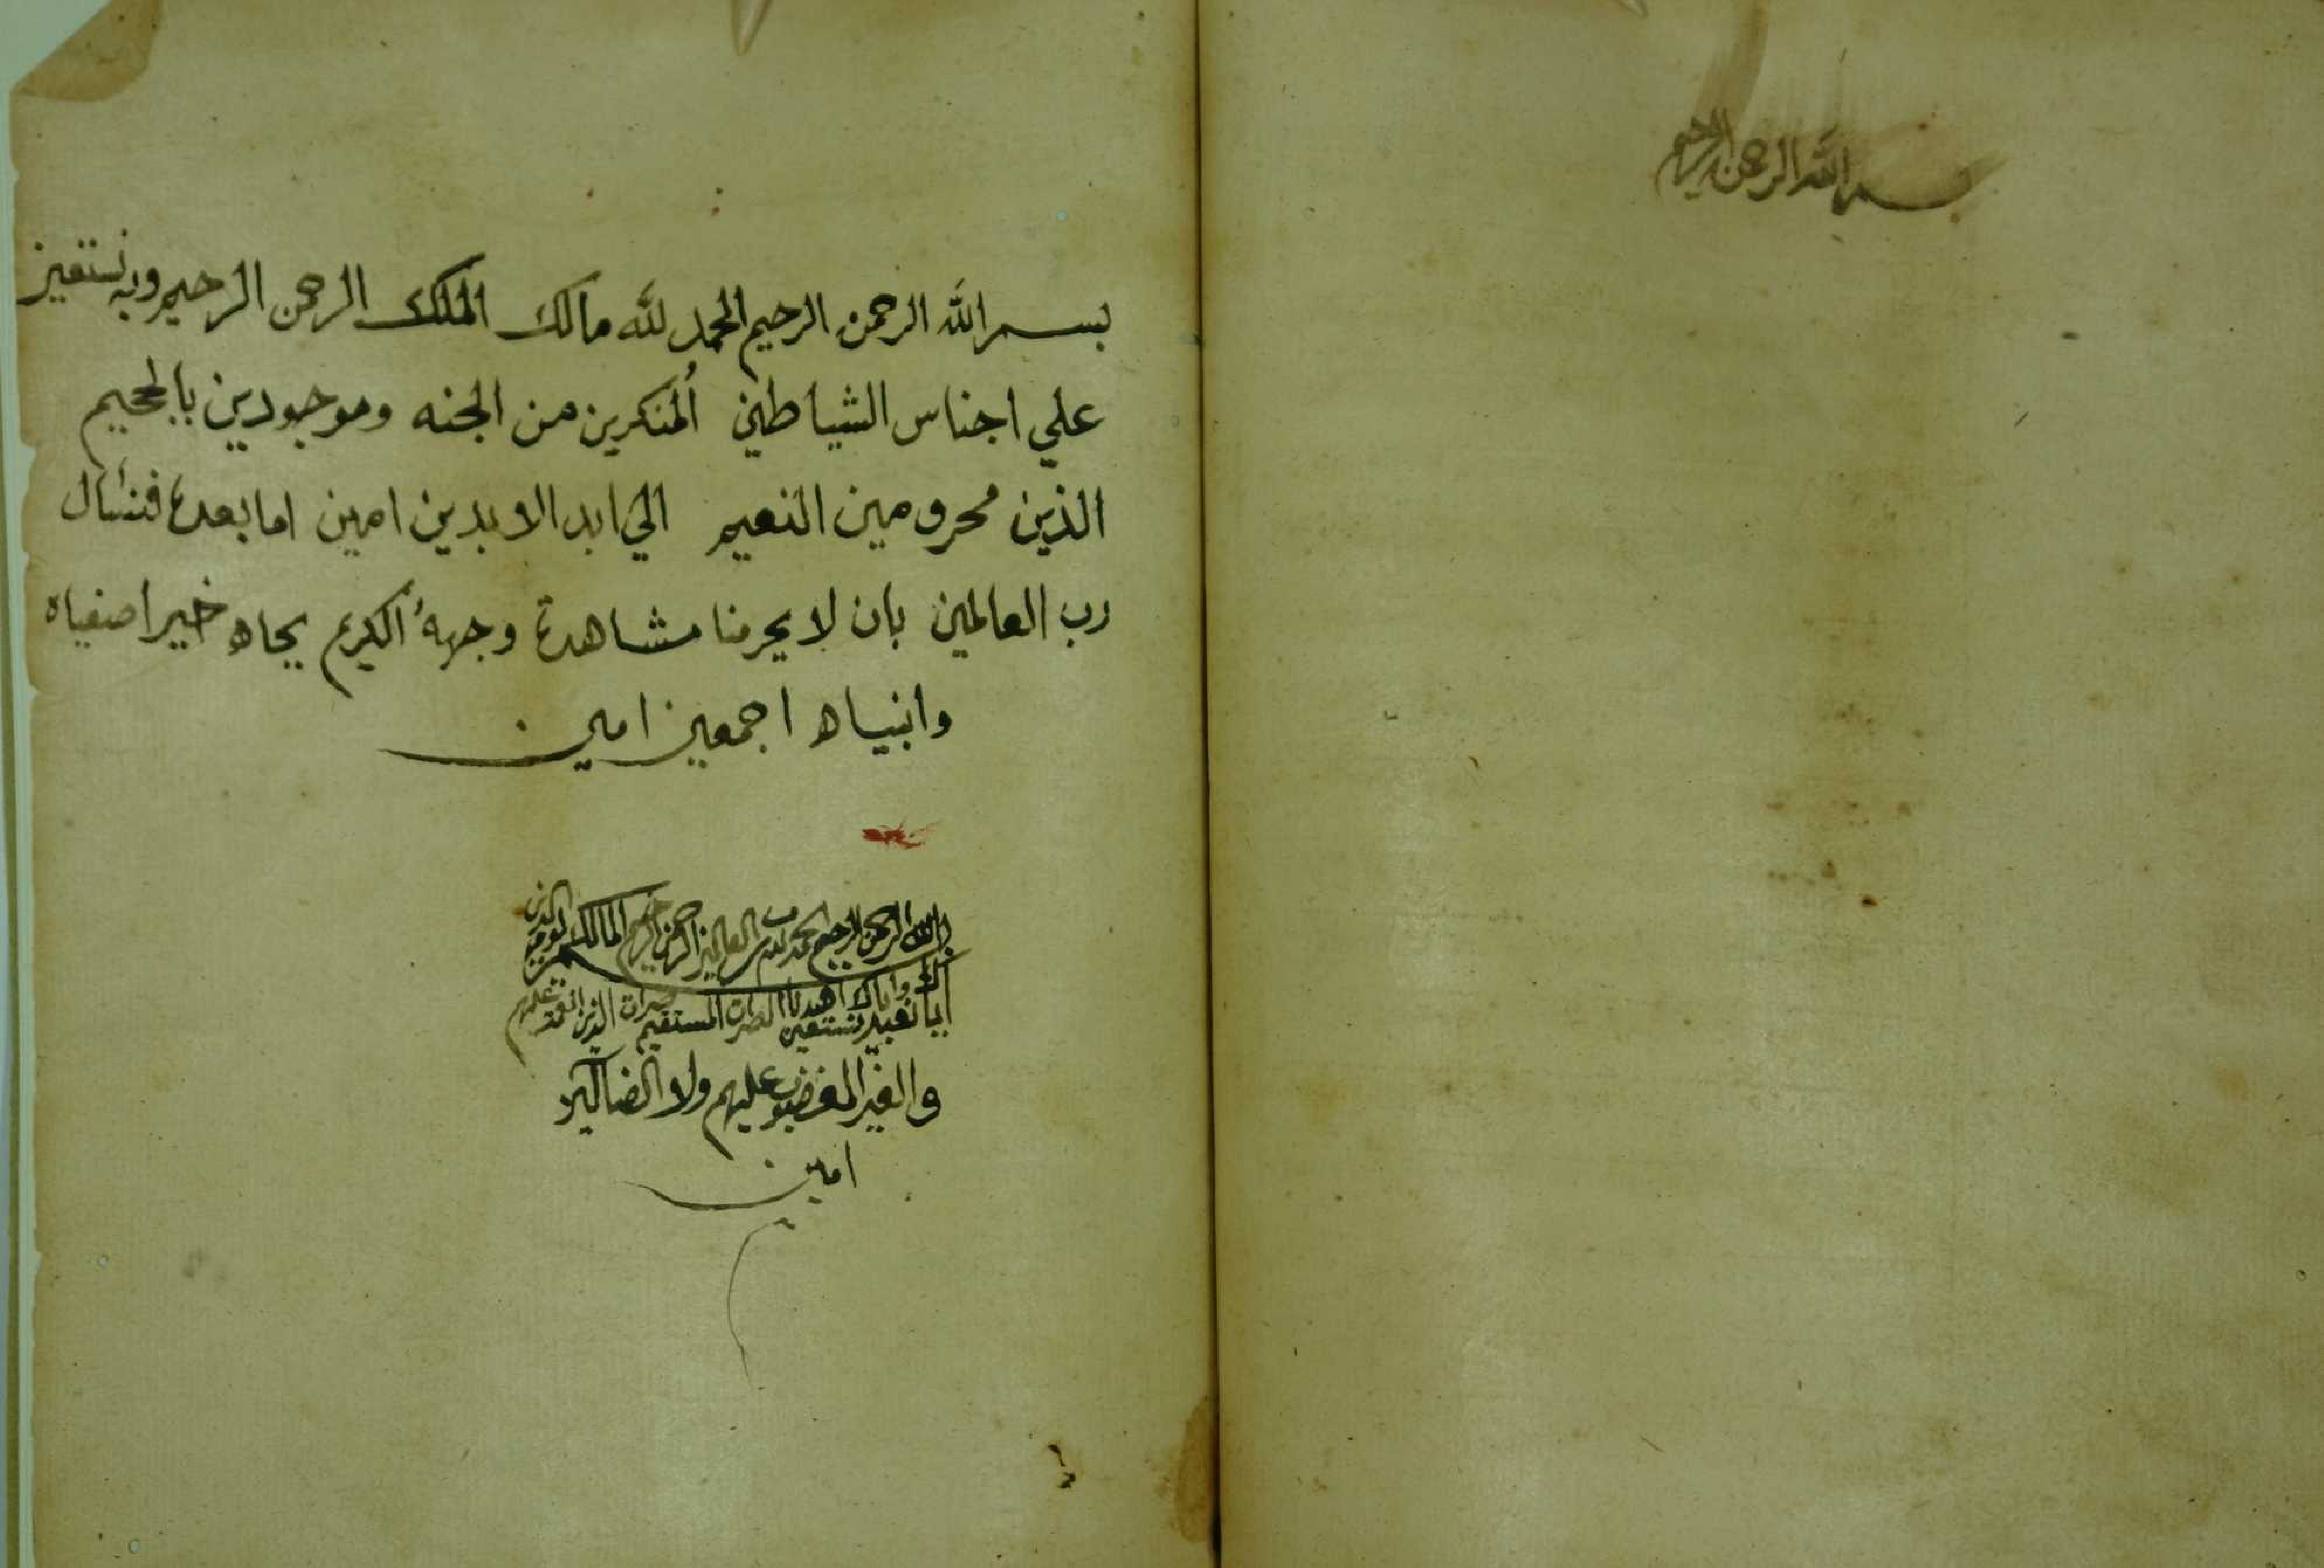 بسم الله الرحمن الرحيم
بسم الله الرحمن الرحيم الحمد لله مالك الملك الرحمن الرحيم وبه نستعين
علي اجناس الشياطين المنكرين من الجنه وموجودين بالجحيم
الذين محرومين النعيم الي ابد الابدين امين اما بعده فنسأل
رب العالمين بان لا يحرمنا مشاهدة وجهه الكريم بجاه خير اصفياه
وانبياه اجمعين امين
بسم الله الرحمن الرحيم الحمد لله رب العالمين الرحمن الرحيم المالك يوم الدين
اياك نعبد واياك نستعين اهدنا الصرات المستقيم صرات الذين انعمت عليهم
والغير المغضوب عليهم ولا الضالين
امين